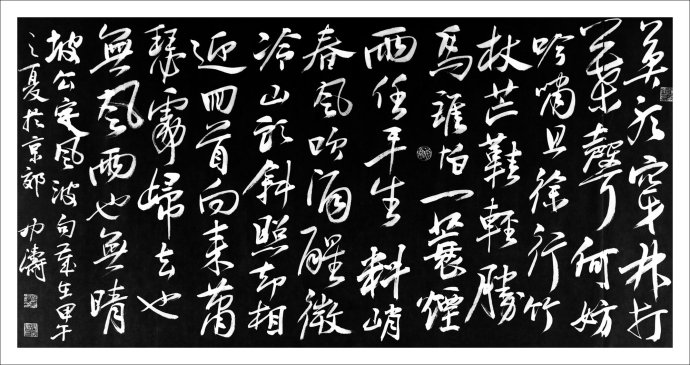 莫聽穿林打
葉聲何妨
吟嘯且徐行竹
杖芒鞋輕勝
馬誰怕一蓑煙
雨任平生料峭
春風吹酒醒微
冷山頭斜照却相
迎回首向來蕭
瑟處歸去也
無風雨也無晴
坡公定風波句歲在甲午
之夏於京郊 濤